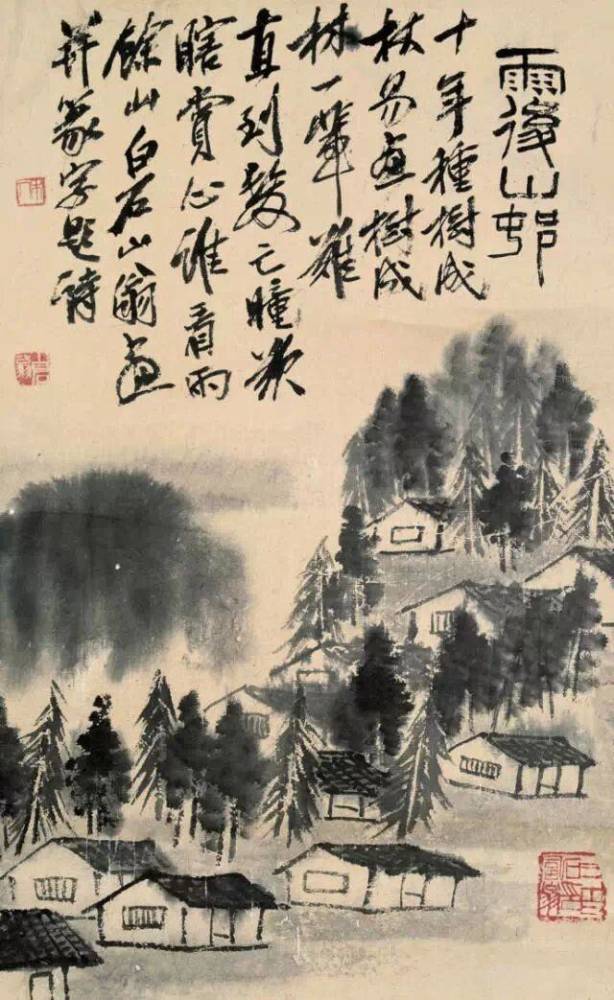 雨後山邨
十年種樹成
林易画樹成
林一輩難
直到髮亡瞳欲
瞎賞心誰看雨
餘山白石山翁画
并篆字題詩